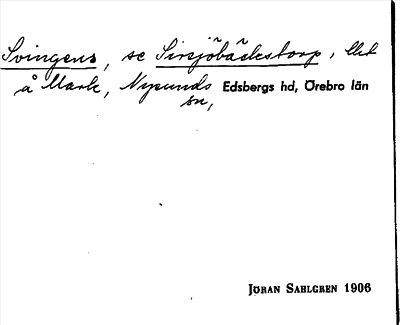 Svingens, se Sirsjöbäckstorp, lht
å Mark, Nysunds Edsbergs hd, Örebro län
sn,
JÖRAN SAHLGREN 1906